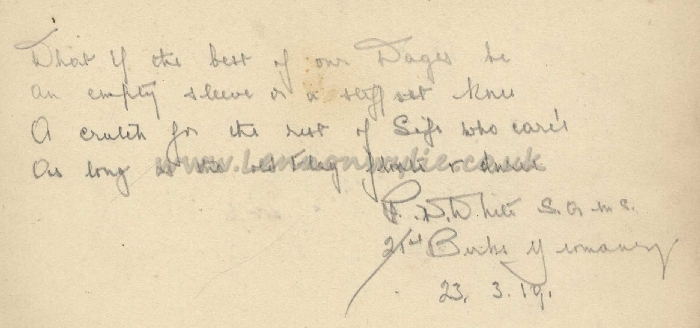 What if the best of our Wages be
An empty sleeve or a stiff set knee
A crutch for the rest of Life who cares
As long as the one Flag floats & dares
P. D. White S.Q.M.S.
2/1st Berks Yeomanry
23. 3. 19.